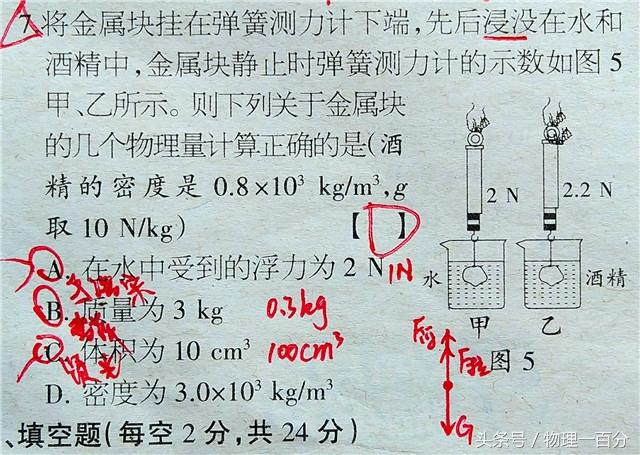 7.将金属块挂在弹簧测力计下端,先后浸没在水和
酒精中,金属块静止时弹簧测力计的示数如图5
甲、乙所示。则下列关于金属块
的几个物理量计算正确的是(酒
精的密度是0.8×10³ kg/m³,g
取10 N/kg) 【D】
A.在水中受到的浮力为2 N 1N
B.质量为3 kg 0.3kg
C.体积为10 cm³ 100cm³
D.密度为3.0×10³ kg/m³
2 N
2.2 N
水
酒精
甲
乙
图5
F浮
F拉
G
、填空题(每空2分,共24分)
头条号/物理一百分